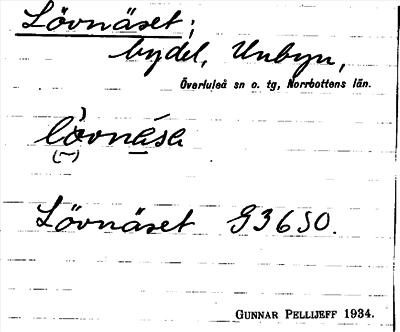 Lövnäset;
bydel, Unbyn,
Överluleå sn o. tg, Norrbottens län.
Lövnäset G3650.
GUNNAR PELLIJEFF 1934.